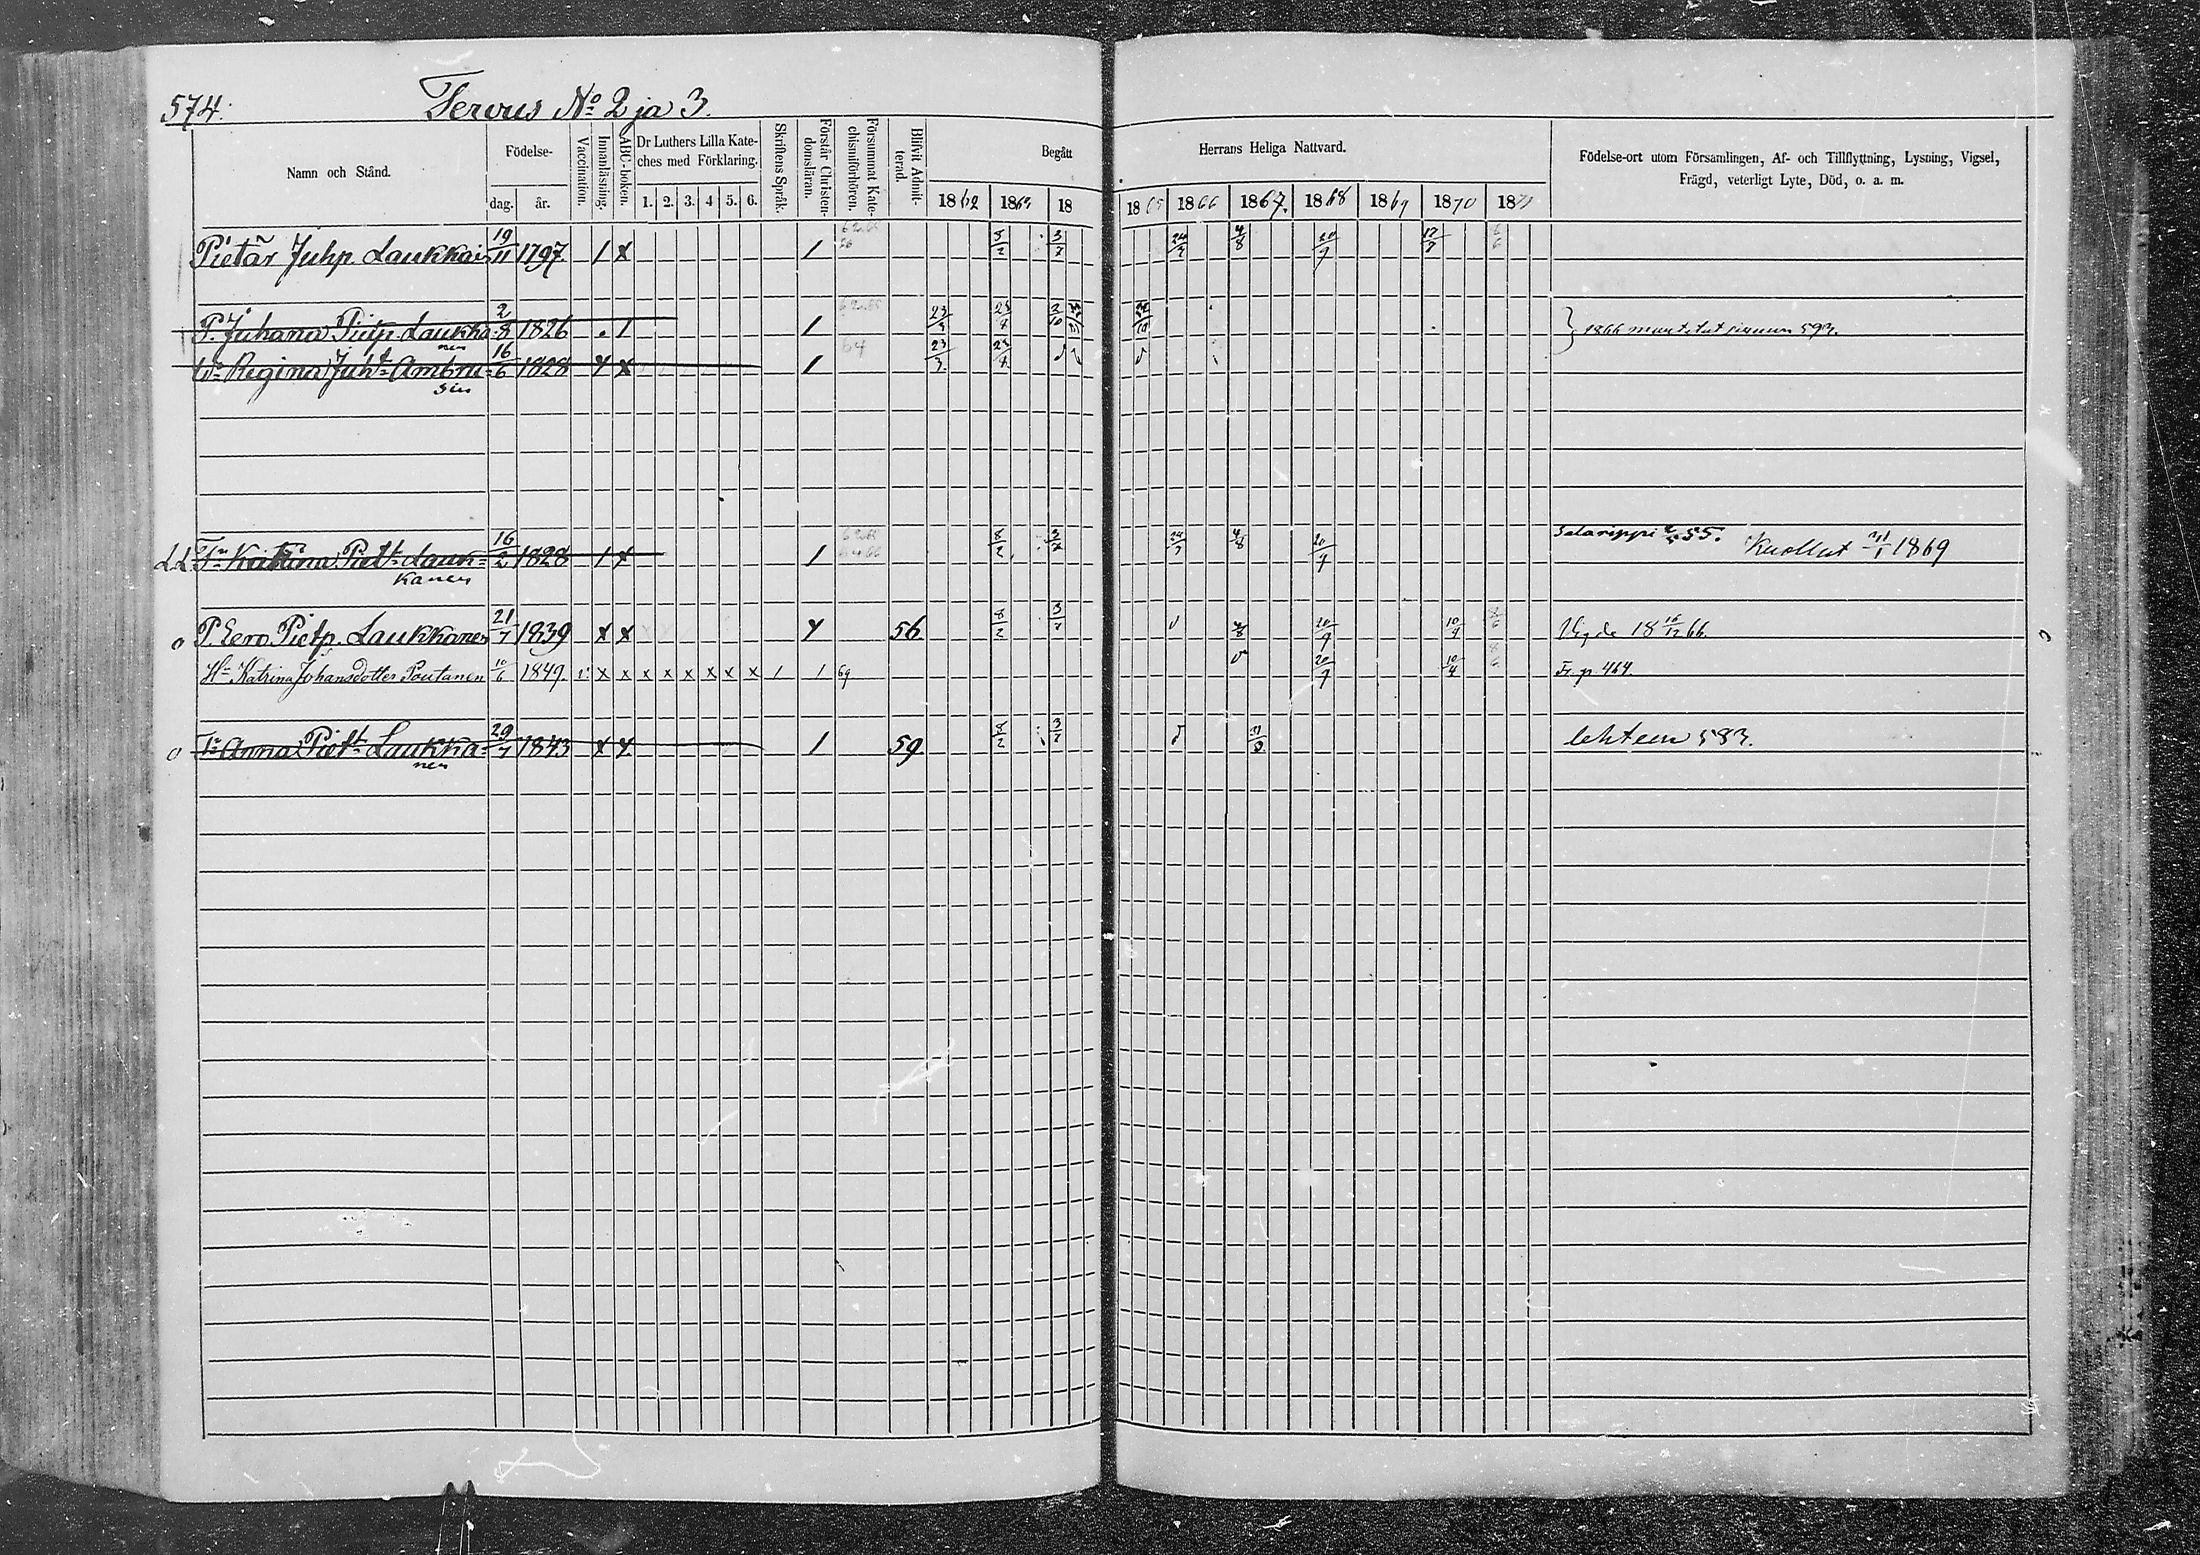 574. Tervus No 2 ja 3.
Namn och Stånd. Födelse- dag. år. Vaccination. Innanläsning. ABC-boken. Dr Luthers Lilla Kateches med Förklaring. 1. 2. 3. 4 5. 6. Skriftens Språk. Förstår Christendomsläran. Försummat Katechismiförhören. Blifvit Admitterad. Begått Herrans Heliga Nattvard.
1862 1863 18 1865 1866 1867. 1868 1869 1870 1871
Födelse-ort utom Församlingen, Af- och Tillflyttning, Lysning, Vigsel,
Frägd, veterligt Lyte, Död, o. a. m.
Pietar Juhp. Laukkain 19/11 1797 1 x 1 8/2 3/7 24/3 4/8 20/9 17/7 6/6
P. Juhana Pietp. Laukka- 2/8 1826 1 1 23/3 23/8 2/10
nen
Wo Regina Juht. Ambru- 16/6 1828 x x 64 1 23/3 23/8
sin
1866 muuttetut sivuun 593.
Tr Katrina Piet. Lauk- 16/2 1828 1 x 1 8/2 3/7 24/3 4/8 20/9 Salarippi 55. Kuollut 1869
kanen
o P. Eero Pietp. Laukkanen 21/7 1839 x x x 56 8/2 3/7 4/8 20/9 10/4 8/6 Vigde 18 16/12 66.
Hu Katrina Johansdotter Poutanen 10/6 1849 v. x x x x x x x x 1 1 69 20/9 10/4 8/6 Fr. p. 464.
o Tr Anna Piet. Laukka- 29/7 1843 x x 1 59 8/2 3/7 lehteen 583.
nen